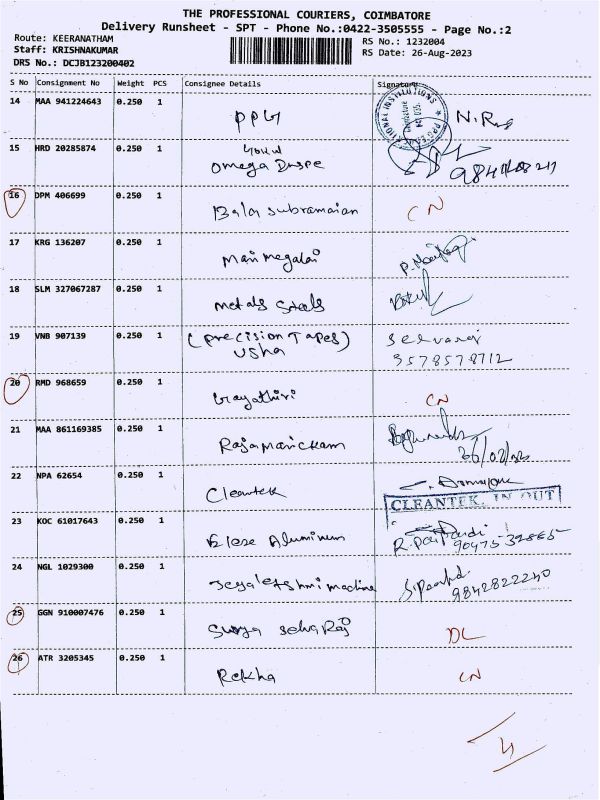 THE PROFESSIONAL COURIERS, COIMBATORE
Delivery Runsheet - SPT - Phone No.:0422-3505555 - Page No.:2
Route: KEERANATHAM RS No.: 1232004
Staff: KRISHNAKUMAR RS Date: 26-Aug-2023
DRS No.: DCJB123200402
S No Consignment No Weight PCS Consignee Details Signature
14 MAA 941224643 0.250 1 PPG
15 HRD 20285874 0.250 1
Omega
16 DPM 406699 0.250 1 Bala Subramaian CN
17 KRG 136207 0.250 1 Manimegalai
18 SLM 327067287 0.250 1 Metals Steels
19 VNB 907139 0.250 1 (Precision Tapes) Selvaraj
Usha 9578578712
20 RMD 968659 0.250 1 Gayathiri CN
21 MAA 861169385 0.250 1 Rajamanickam
22 NPA 62654 0.250 1 Cleantek
CLEANTEK. IN OUT
23 KOC 61017643 0.250 1 Elese Aluminum
90475-32865
24 NGL 1029300 0.250 1 Jeyalakshmi machine
9842822240
25 GGN 910007476 0.250 1 Surya Selvaraj DL
26 ATR 3205345 0.250 1 Rekha CN
4